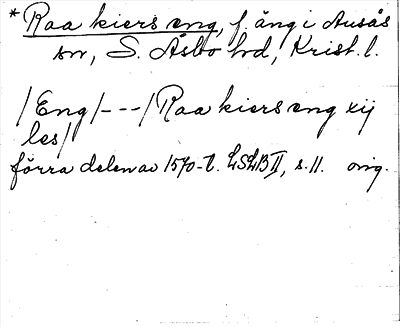 *Raa kiers eng, f. äng i Ausås
sn, S. Åsbo hd, Krist. l.
/Eng/---/Raa kiers eng xij
les/
förra delen av 1570-t. LSLB II, s. 11. orig.